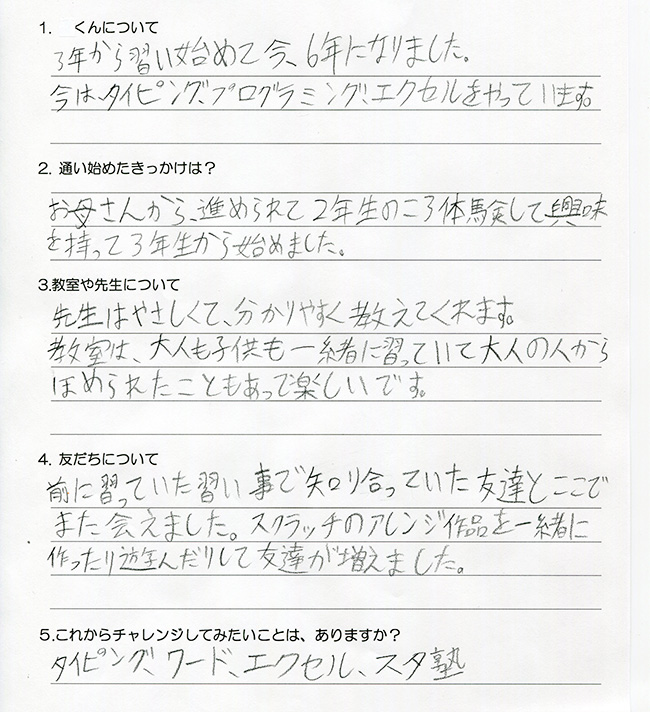 1. くんについて
3年から習い始めて今、6年になりました。
今は、タイピング、プログラミング、エクセルをやっています。
2. 通い始めたきっかけは？
お母さんから、進められて2年生のころ体験して興味
を持って3年生から始めました。
3.教室や先生について
先生はやさしくて、分かりやすく教えてくれます。
教室は、大人も子供も一緒に習っていて大人の人から
ほめられたこともあって楽しいです。
4. 友だちについて
前に習っていた習い事で知り合っていた友達とここで
また会えました。スクラッチのアレンジ作品を一緒に
作ったり遊んだりして友達が増えました。
5.これからチャレンジしてみたいことは、ありますか？
タイピング、ワード、エクセル、スタ塾